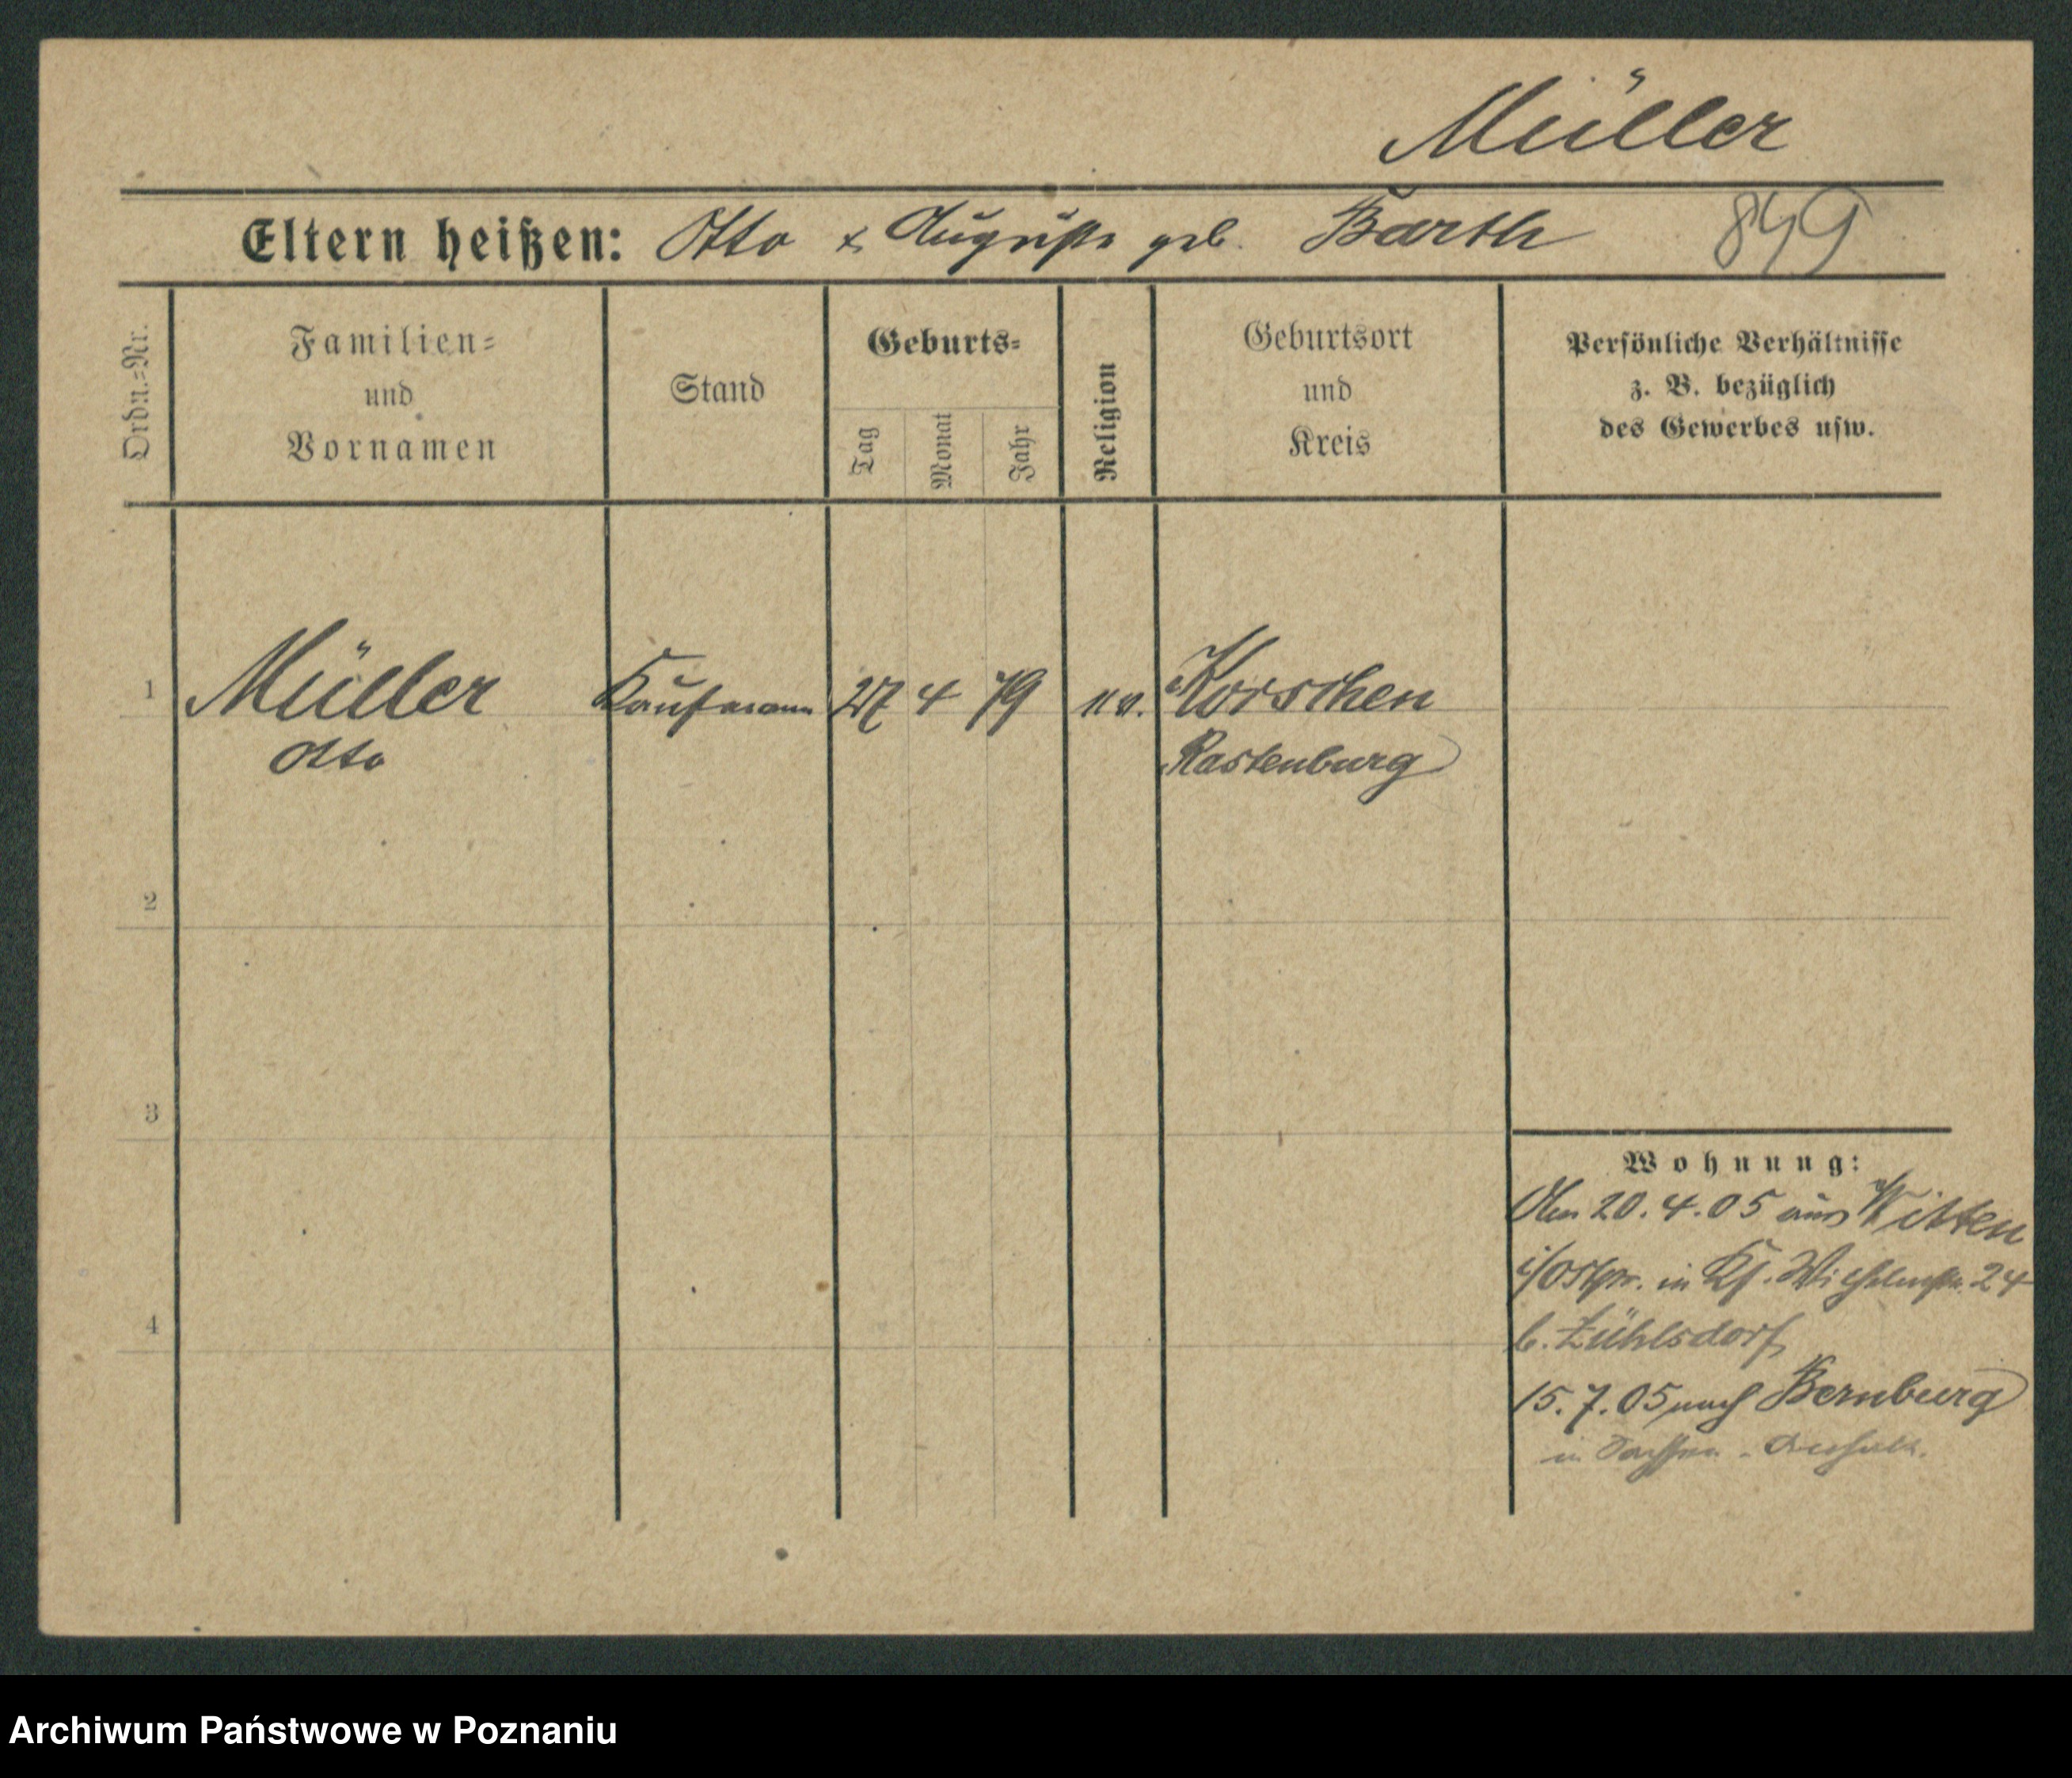 Müller
Eltern heißen: Otto & Auguste geb. Barth 849
Ordn.=Nr.
Familien=
und
Vornamen
Stand
Geburts=
Tag
Monat
Jahr
Religion
Geburtsort
und
Kreis
Persönliche Verhältnisse
z. B. bezüglich
des Gewerbes usw.
1 Müller Kaufmann 27 4 79 ev. Korschen
Otto Rastenburg
2
3
4
Wohnung:
Am 20.4.05 aus Witten
i/Ostpr. in Kf. Wilhelmstr. 24
b. Zühlsdorf
15.7.05 nach Bernburg
in Sachsen-Anhalt.
Archiwum Państwowe w Poznaniu